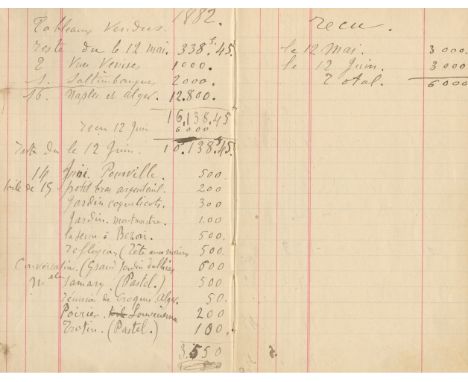 1882.
Tableaux Vendus.
reste du le 12 mai. 338.45
2 Vues Venise 1000.
1. Saltimbanque 2000.
16. Naples et Alger. 12.800.
16,138.45
recu 12 Juin 6000
reste du le 12 Juin. 10.138.45.
14 Pourville. 500.
toile de 15 petit bras argenteuil. 200
Jardin coquelicots. 300
Jardin. montmartre. 100
à Bezon. 500.
réflexion (Tête aux mains 500.
Conversation (Grand Jardin 600
Samary. (Pastel) 500
de Croquis Alger. 50.
Poirier. Louveciennes 200
Trotin. (Pastel.) 100.
3550
recu.
le 12 Mai. 3000
le 12 Juin. 3000.
Total. 6000